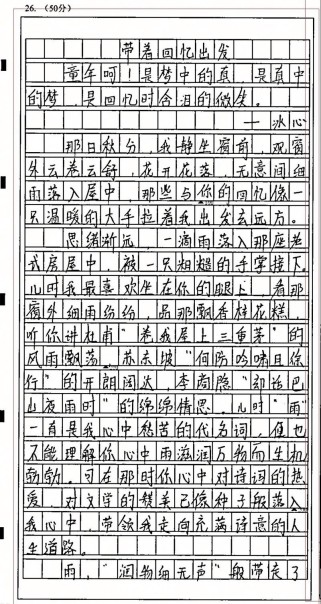 26.（50分）
带着回忆出发
童年呵！是梦中的真，是真中
的梦，是回忆时含泪的微笑。
—冰心
那日秋分，我静坐窗前，观窗
外云卷云舒，花开花落，无意间细
雨落入屋中，那些与你的回忆像一
只温暖的大手拉着我出发去远方。
思绪渐远，一滴雨落入那座老
式房屋中，被一只粗糙的手掌接下。
儿时我最喜欢坐在你的腿上，看那
窗外细雨纷纷，品那飘香桂花糕，
听你讲杜甫"卷我屋上三重茅"的
风雨飘荡，苏东坡"何妨吟啸且徐
行"的开朗阔达，李商隐"却话巴
山夜雨时"的绵绵情思。儿时"雨"
一直是我心中愁苦的代名词，但也
不能理解你心中雨滋润万物而生机
勃勃。可在那时你心中对诗词的热
爱，对文学的赞美已像种子般落入
我心中，带领我走向充满诗意的人
生道路。
雨，"润物细无声"般带走了